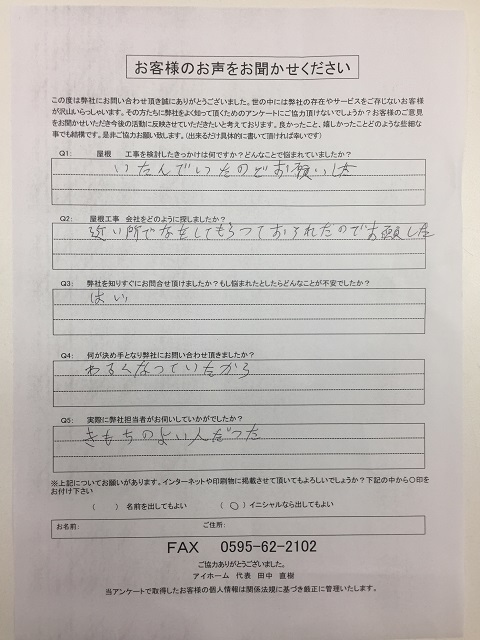 お客様のお声をお聞かせください
この度は弊社にお問い合わせ頂き誠にありがとうございました。世の中には弊社の存在やサービスをご存じないお客様
が沢山いらっしゃいます。その方たちに弊社をよく知って頂くためのアンケートにご協力頂けないでしょうか?お客様のご意見
をお聞かせいただき今後の活動に反映させていただきたいと考えております。良かったこと、嬉しかったことどのような些細な
事でも結構です。是非ご協力お願い致します。(出来るだけ具体的に書いて頂ければ幸いです)
Q1: 屋根 工事を検討したきっかけは何ですか?どんなことで悩まれていましたか?
いたんでいつたのでお願いした
Q2: 屋根工事 会社をどのように探しましたか?
近い所でなをしてもらつておられたのでお願した
Q3: 弊社を知りすぐにお問合せ頂けましたか?もし悩まれたとしたらどんなことが不安でしたか?
はい
Q4: 何が決め手となり弊社にお問い合わせ頂きましたか?
わるくなっていたから
Q5: 実際に弊社担当者がお伺いしていかがでしたか?
きもちのよい人だつた
※上記についてお願いがあります。インターネットや印刷物に掲載させて頂いてもよろしいでしょうか?下記の中から○印を
お付け下さい
( ) 名前を出してもよい (○) イニシャルなら出してもよい
お名前: ご住所:
FAX 0595-62-2102
ご協力ありがとうございました。
アイホーム 代表 田中 直樹
当アンケートで取得したお客様の個人情報は関係法規に基づき厳正に管理いたします。